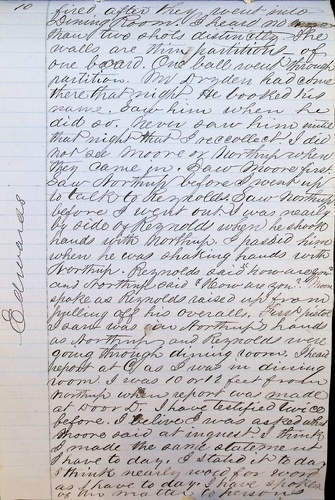 10
fired after they went into
Dining Room. I heard no more
than two shots distinctly. The
walls are thin partitions of
one board. One ball went through
partition. Mr Dryden had come
there that night. He booked his
name. Saw him when he
did so. Never saw him until
that night that I recollect. I did
not see Moore or Northup when
they came in. Saw Moore first.
Saw Northup before I went up
to talk to Reynolds. Saw Northup
before I went out. I was near
by side of Reynolds when he shook
hands with Northup. I passed him
when he was shaking hands with
Northup. Reynolds said "how are you"
and Northup said "How are you".
spoke as Reynolds raised up from
pulling off his overalls. First pistol
I saw was in Northup's hands
as Northup and Reynolds were
going through dining room. I heard
report at C, as I was in dining
room. I was 10 or 12 feet from
Northup when report was made
at Door D. I have testified twice
before. I believe I was asked where
Moore said at inquest. I think
I made the same statement
I have to day. I stated it to day
I think nearly word for word
as I have to day. I have spoken
of this matter to
Edwards